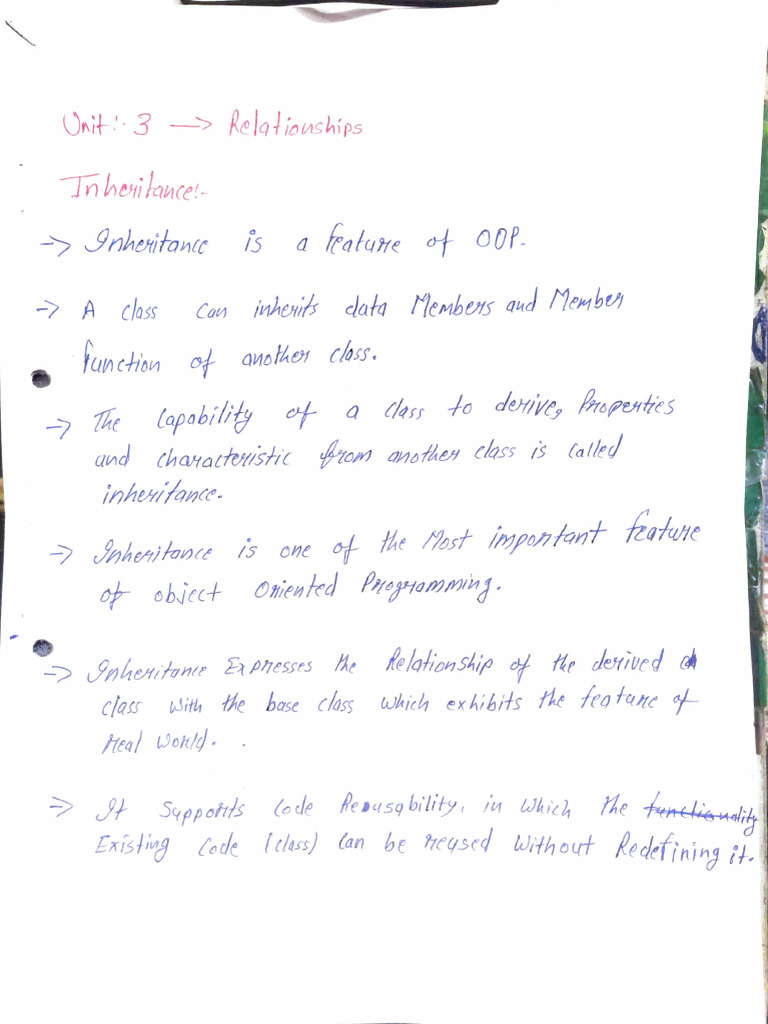 Unit:- 3 → Relationships
Inheritance:-
→ Inheritance is a feature of OOP.
→ A class can inherits data Members and Member
function of another class.
→ The Capability of a class to derive, Properties
and characteristic from another class is called
inheritance.
→ Inheritance is one of the Most important feature
of object Oriented Programming.
→ Inheritance Expresses the Relationship of the derived
class with the base class which exhibits the feature of
real world.
→ It Supports Code Reausability, in which the functionality
Existing Code (class) Can be reused Without Redefining it.